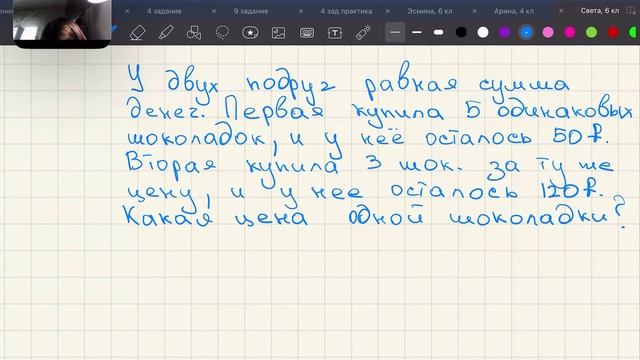 4 задание
9 задание
4 зад практика
Эсмина, 6 кл
Арина, 4 кл
Света, 6 кл
У двух подруг равная сумма
денег. Первая купила 5 одинаковых
шоколадок, и у неё осталось 50 ₽.
Вторая купила 3 шок. за ту же
цену, и у нее осталось 120 ₽.
Какая цена одной шоколадки?